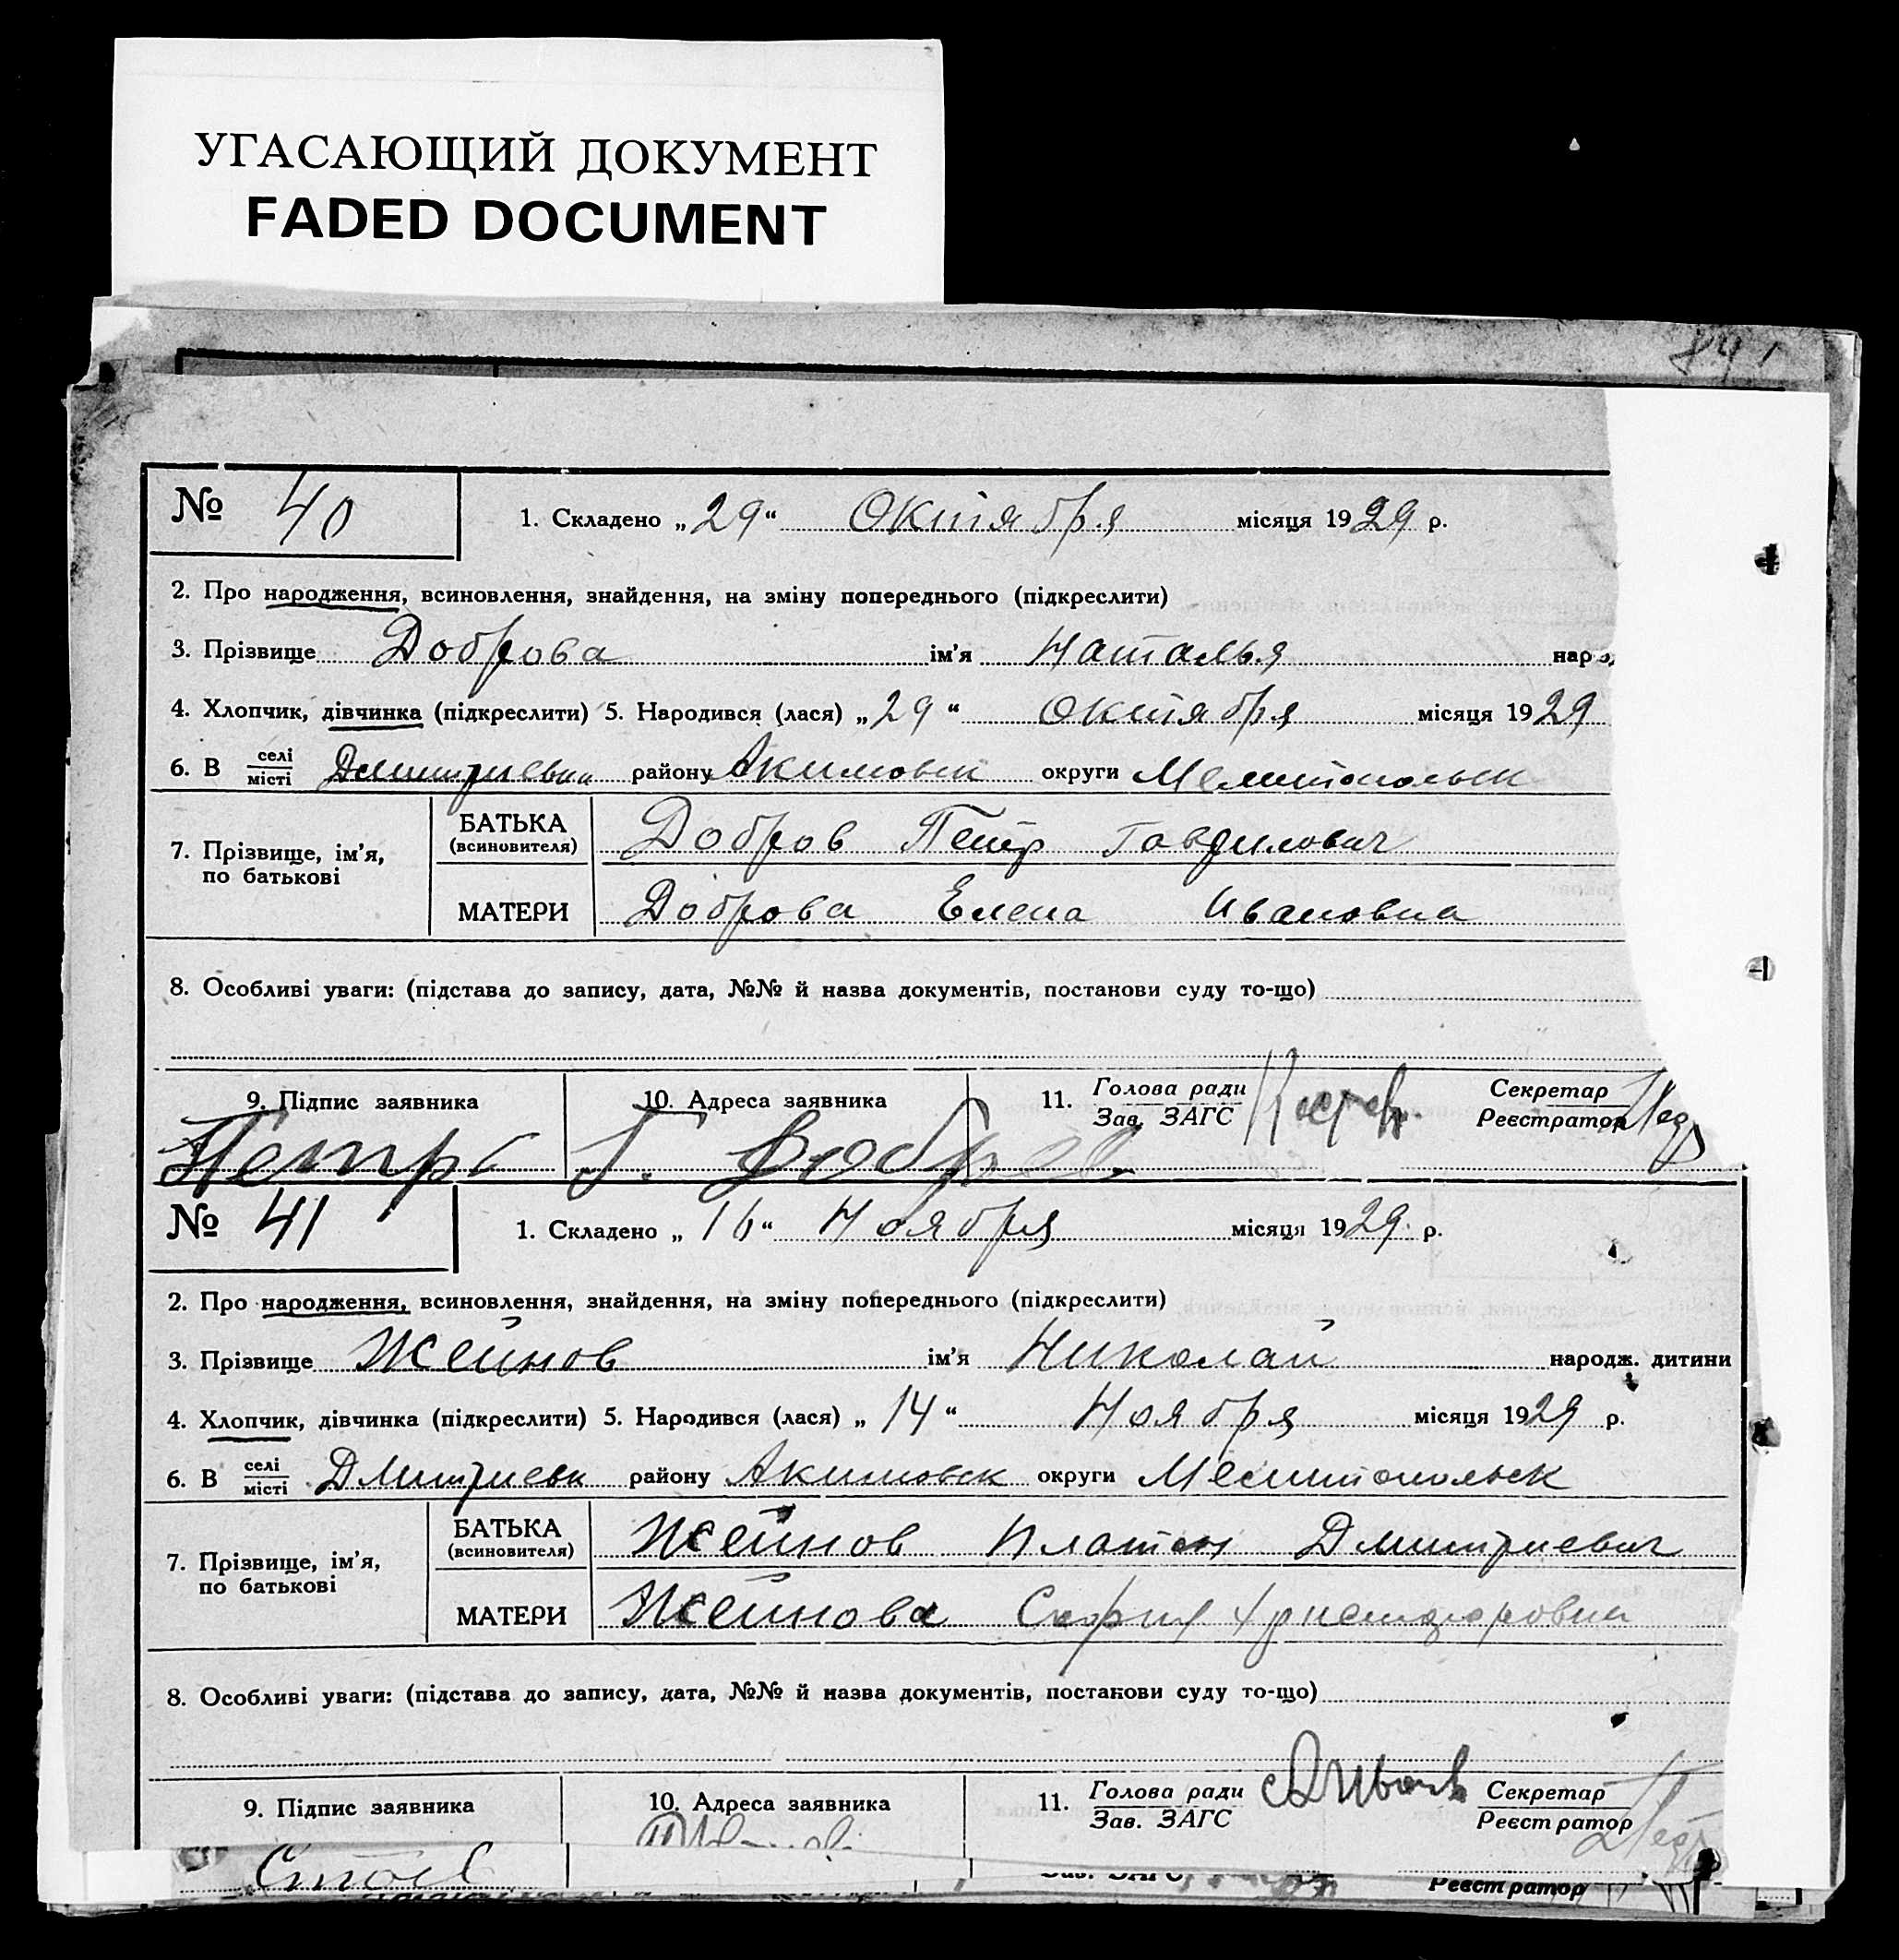 УГАСАЮЩИЙ ДОКУМЕНТ
FADED DOCUMENT
841
№ 40 1. Складено „29“ Октября місяця 1929 р.
2. Про народження, всиновлення, знайдення, на зміну попереднього (підкреслити)
3. Прізвище Доброва ім'я Наталья нар
4. Хлопчик, дівчинка (підкреслити) 5. Народився (лася) „29“ Октября місяця 1929
6. В селі/місті Дмитриевки району Акимовск округи Мелитопольск
7. Прізвище, ім'я, по батькові БАТЬКА (всиновителя) Добров Петр Гаврилович
МАТЕРИ Доброва Елена Ивановна
8. Особливі уваги: (підстава до запису, дата, №№ й назва документів, постанови суду то-що)
9. Підпис заявника 10. Адреса заявника 11. Голова ради/Зав. ЗАГС Секретар/Реєстратор
Петр Г. Добров
№ 41 1. Складено „16“ Ноября місяця 1929 р.
2. Про народження, всиновлення, знайдення, на зміну попереднього (підкреслити)
3. Прізвище Жейнов ім'я Николай народж. дитини
4. Хлопчик, дівчинка (підкреслити) 5. Народився (лася) „14“ Ноября місяця 1929 р.
6. В селі/місті Дмитриевк району Акимовск округи Мелитопольск
7. Прізвище, ім'я, по батькові БАТЬКА (всиновителя) Жейнов Платон Дмитриевич
МАТЕРИ Жейнова София
8. Особливі уваги: (підстава до запису, дата, №№ й назва документів, постанови суду то-що)
9. Підпис заявника 10. Адреса заявника 11. Голова ради/Зав. ЗАГС Секретар/Реєстратор
Реєстратор